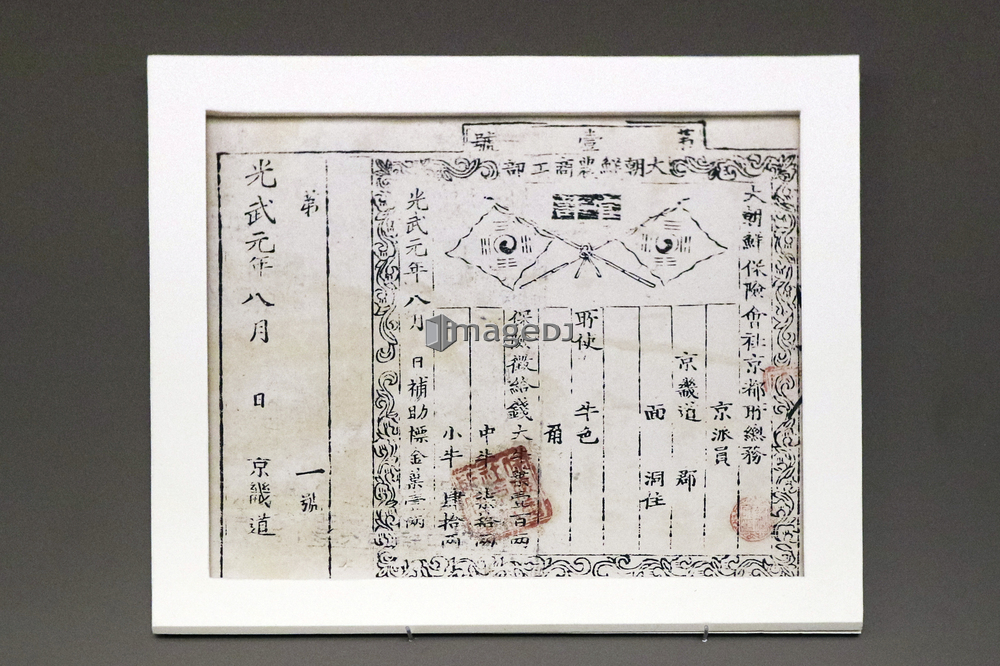 苐壹號
大朝鮮農商工部
大朝鮮保險會社京都所總務
京派員
京畿道 郡
面 洞住
所使 牛色
保險徵給錢大牛葉壹百兩
中牛 柒拾兩
小牛 肆拾兩
光武元年八月 日補助標金葉壹兩
苐 一號
光武元年八月 日 京畿道
imageDJ